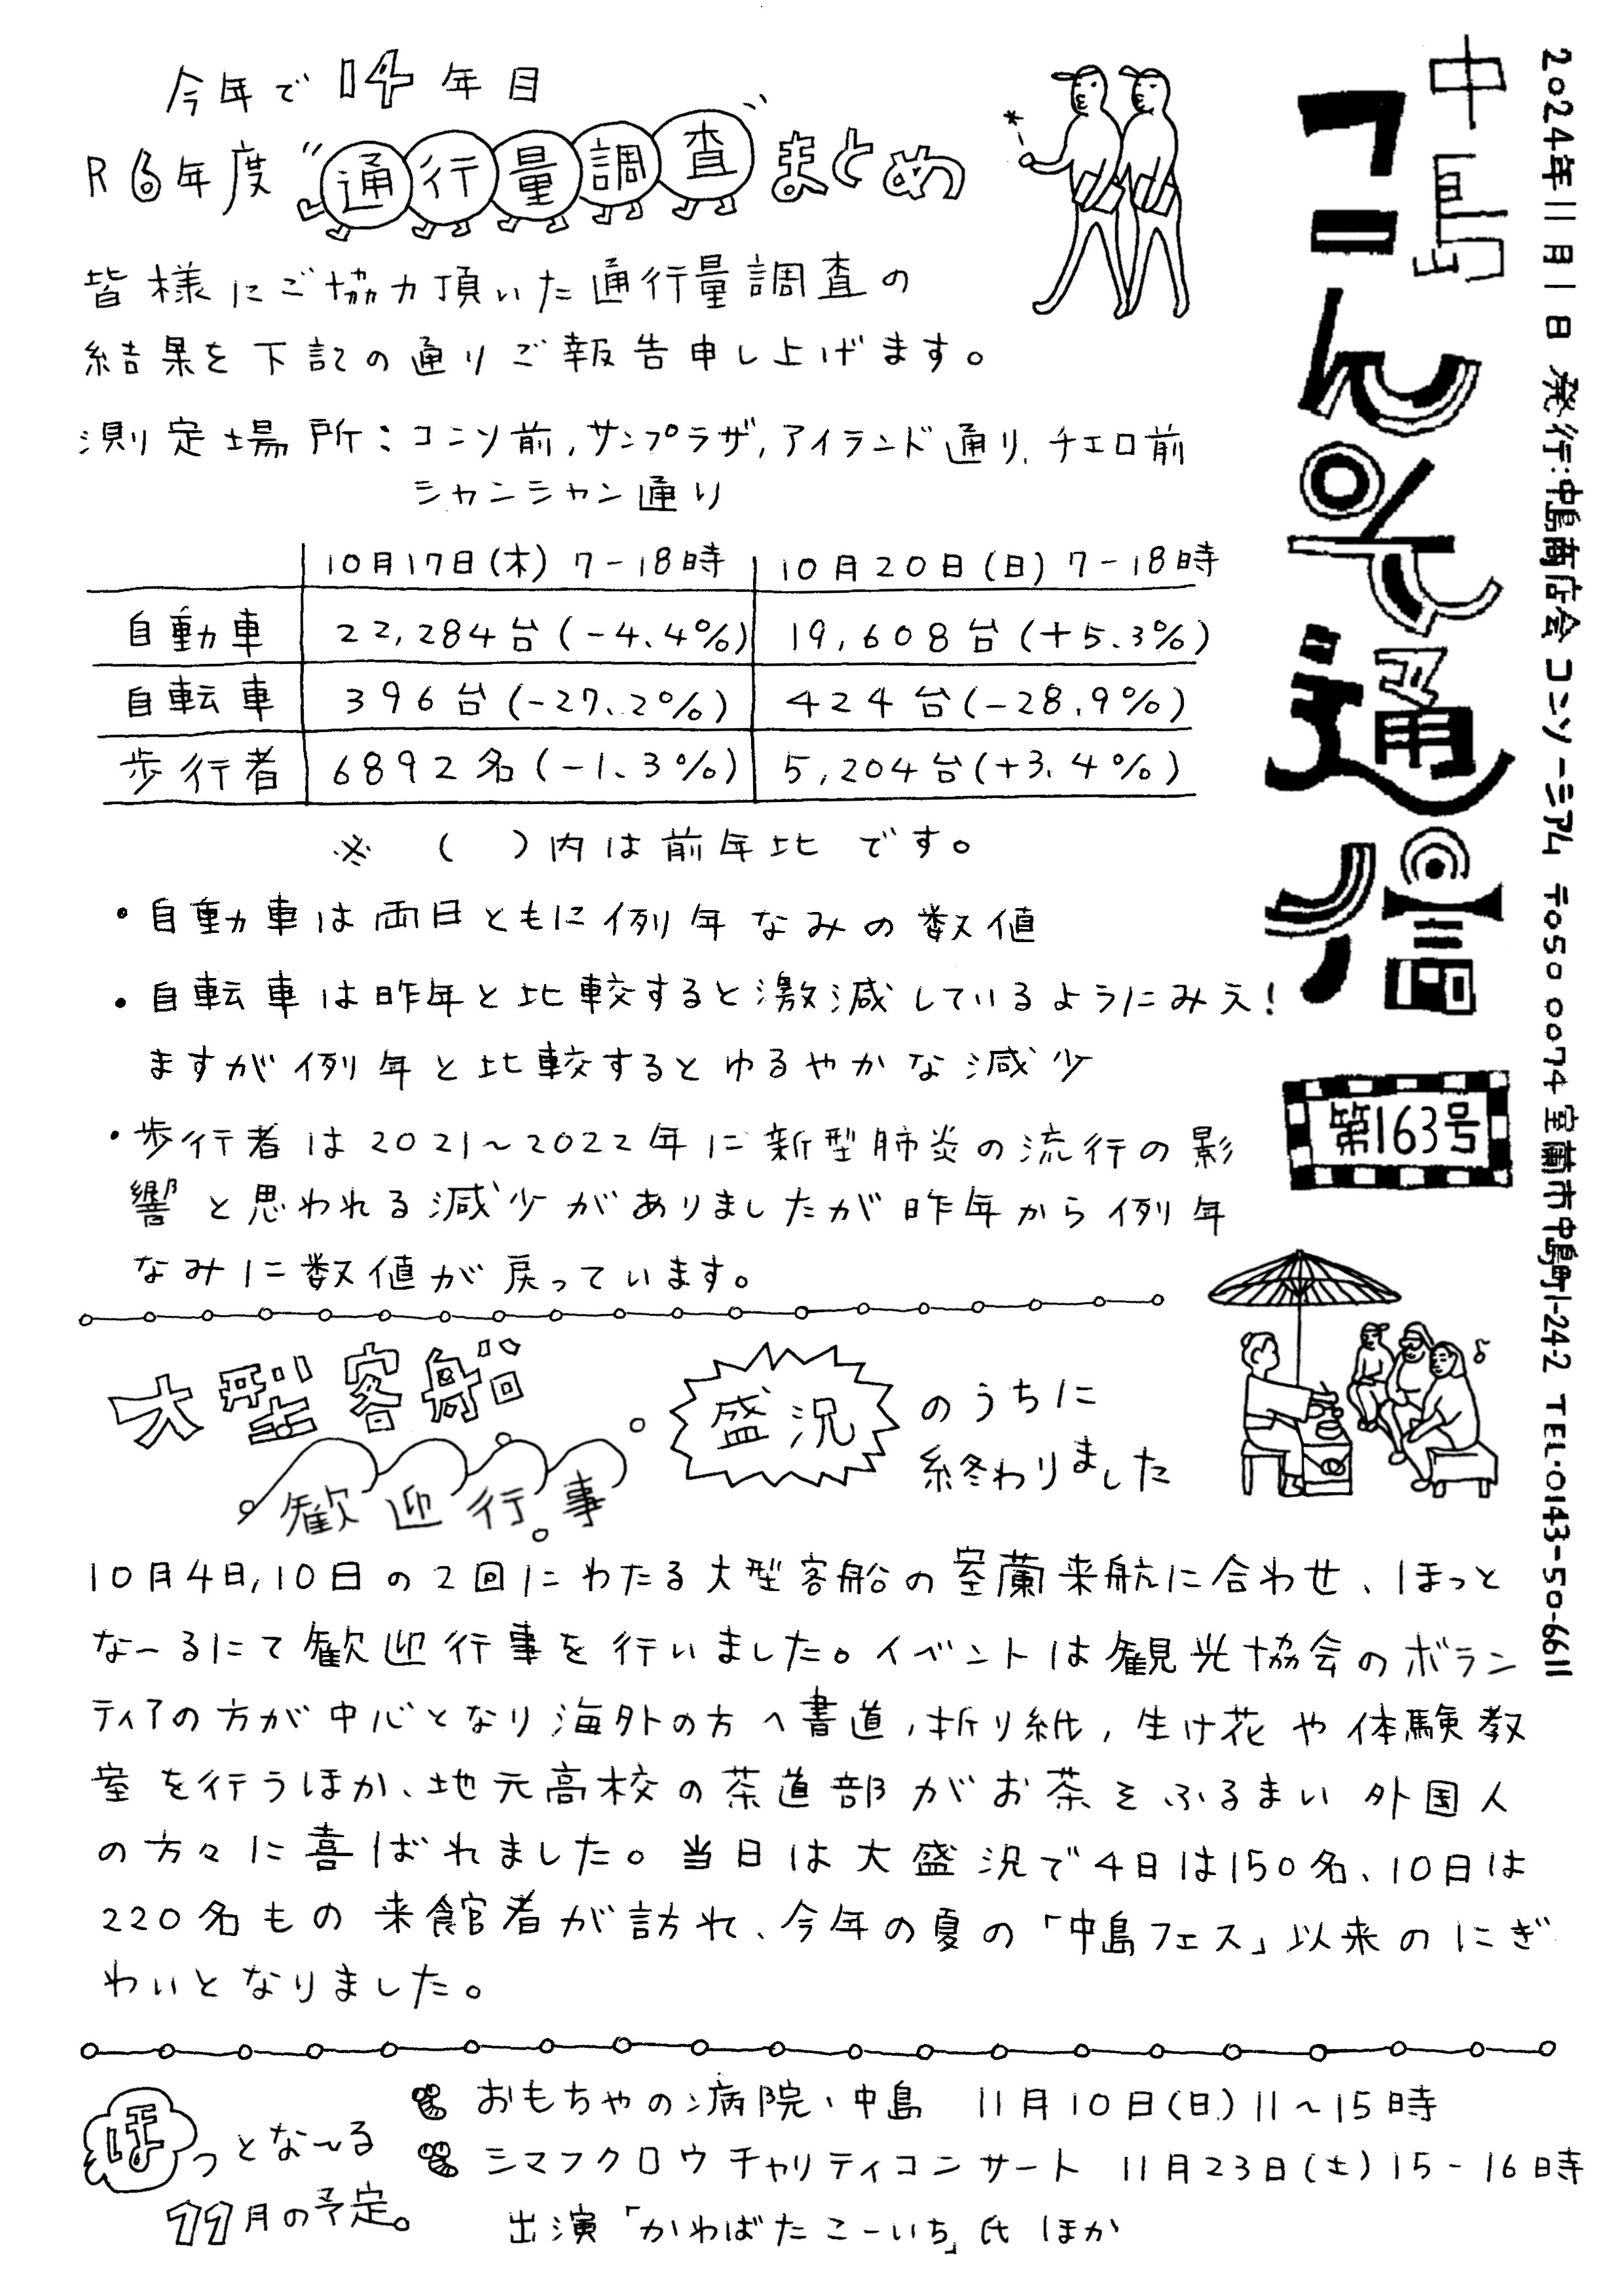 2024年11月1日 発行:中島商店会コンソーシアム 〒050 0074 室蘭市中島町1-24-2 TEL・0143-50-6611
中島
コニんソ通信
第163号
今年で14年目
R6年度"通行量調査"まとめ
皆様にご協力頂いた通行量調査の
結果を下記の通りご報告申し上げます。
測定場所:コニソ前,サンプラザ,アイランド通り,チエロ前
シャンシャン通り
10月17日(木) 7-18時 10月20日(日) 7-18時
自動車 22,284台(-4.4%) 19,608台(+5.3%)
自転車 396台(-27.2%) 424台(-28.9%)
歩行者 6892名(-1.3%) 5,204台(+3.4%)
※ ( )内は前年比です。
・自動車は両日ともに例年なみの数値
・自転車は昨年と比較すると激減しているようにみえ!
ますが例年と比較するとゆるやかな減少
・歩行者は2021~2022年に新型肺炎の流行の影
響と思われる減少がありましたが昨年から例年
なみに数値が戻っています。
大型客船
歓迎行事
盛況
のうちに
終わりました
10月4日,10日の2回にわたる大型客船の室蘭来航に合わせ、ほっと
な~るにて歓迎行事を行いました。イベントは観光協会のボラン
ティアの方が中心となり海外の方へ書道,折り紙,生け花や体験教
室を行うほか、地元高校の茶道部がお茶をふるまい外国人
の方々に喜ばれました。当日は大盛況で4日は150名、10日は
220名もの来館者が訪れ、今年の夏の「中島フェス」以来のにぎ
わいとなりました。
ほっとな~る
11月の予定。
おもちゃの病院・中島 11月10日(日)11~15時
シマフクロウチャリティコンサート 11月23日(土)15-16時
出演「かわばたこーいち」氏 ほか